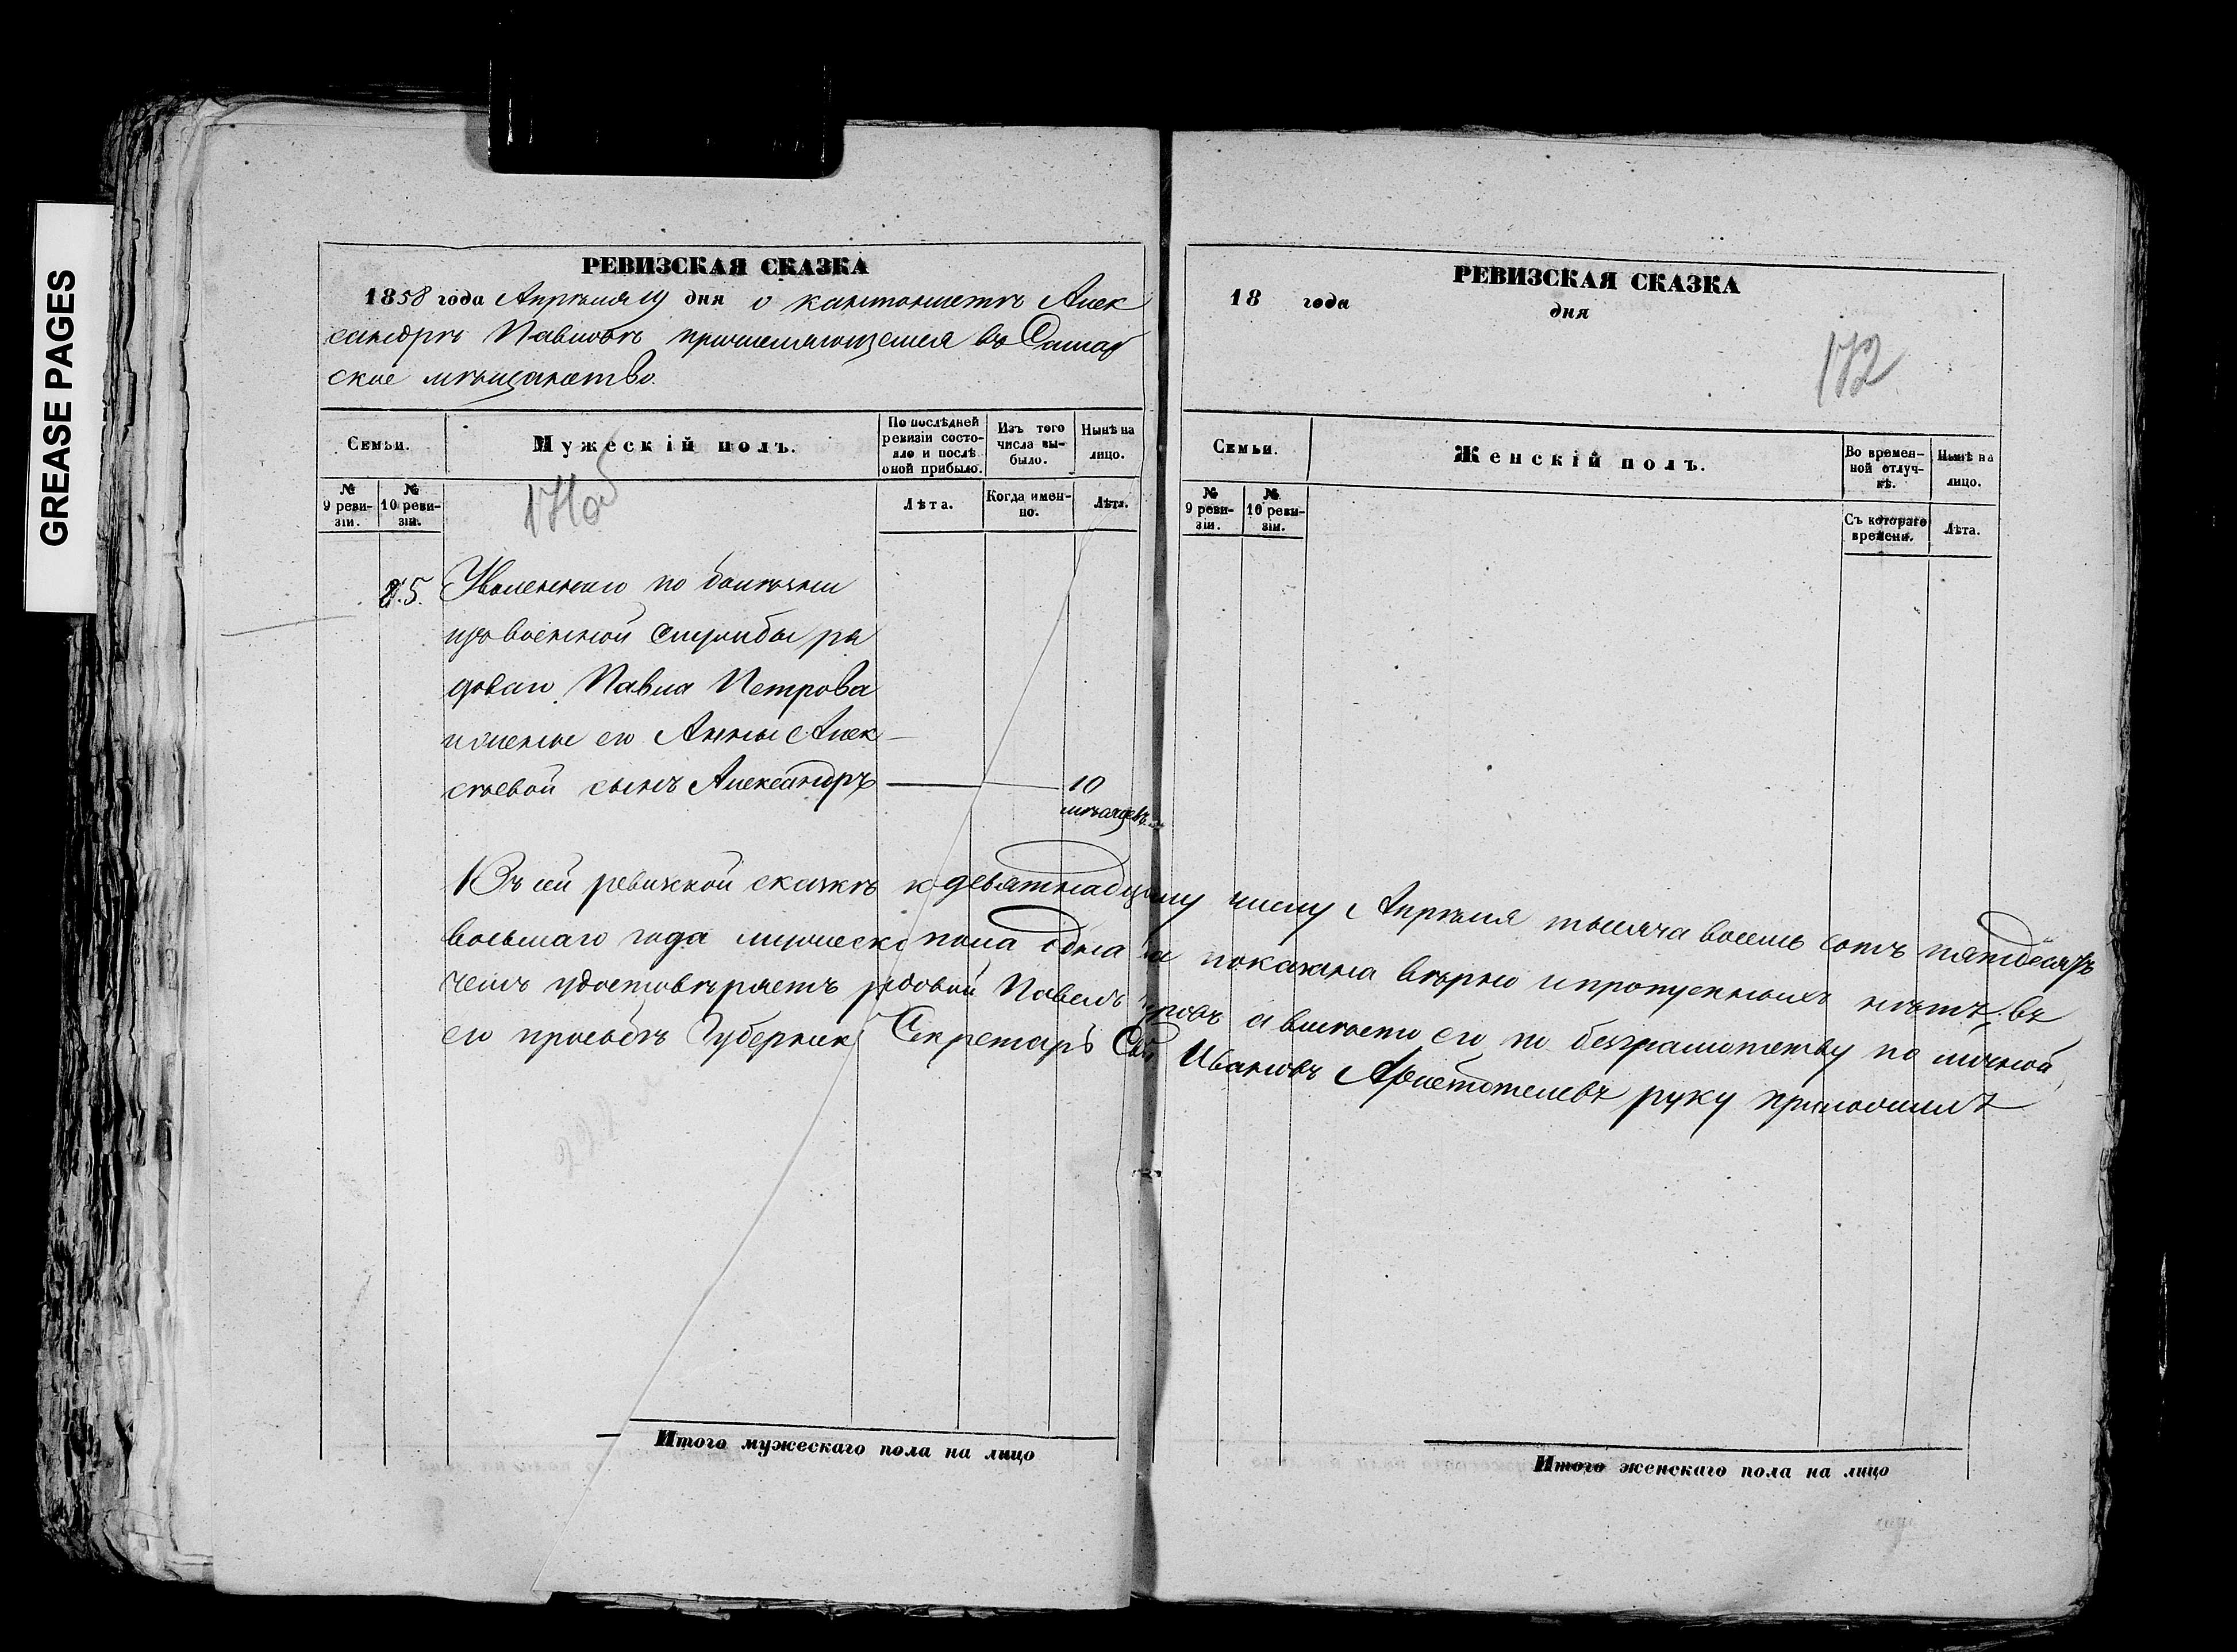 GREASE PAGES
РЕВИЗСКАЯ СКАЗКА
1858 года Апрѣля 19 дня о кантонистѣ Алек
сандрѣ Павловѣ причисляющемся въ Самар
ское мѣщанство.
Семьи.
Мужескій полъ.
По послѣдней ревизіи состояло и послѣ оной прибыло.
Изъ того числа выбыло.
Нынѣ на лицо.
№ 9 ревизіи.
№ 10 ревизіи.
Лѣта.
Когда именно.
Лѣта.
171об
5. Уволеннаго по болѣзни
изъ военной службы ря
доваго Павла Петрова
и жены его Анны Алек
сѣевой сынъ Александръ 10
мѣсяцевъ
Въ сей ревизкой сказкѣ к девятнадцатому числу Апрѣля тысяча восемь сотъ пятдесятъ
восьмаго года мужеска пола одна показана вѣрно и пропускныхъ нѣтъ, въ
чемъ удостовѣряетъ рядовой Павелъ а вмѣсто его по безграмотству по личной
его прозьбѣ Губернскій Секретарь Иванов Аристотелевъ руку приложилъ
Итого мужескаго пола на лицо
РЕВИЗСКАЯ СКАЗКА
18 года дня
172
Семьи.
Женскій полъ.
Во временной отлучкѣ.
Нынѣ на лицо.
№ 9 ревизіи.
№ 10 ревизіи.
Съ котораго времени.
Лѣта.
Итого женскаго пола на лицо